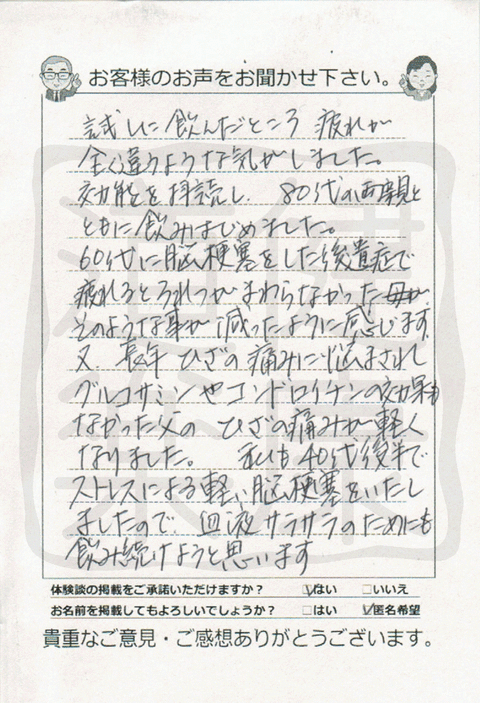 お客様のお声をお聞かせ下さい。
試しに飲んだところ 疲れが
全く違うような気がしました。
効能を拝読し、80代の両親と
ともに飲みはじめました。
60代に脳梗塞をした後遺症で
疲れるとろれつがまわらなかった母が
そのような事が減ったように感じます
又 長年 ひざの痛みに悩まされ
グルコサミンやコンドロイチンの効果も
なかった父の ひざの痛みが軽く
なりました。 私も40代後半で
ストレスによる軽い脳梗塞をいたし
ましたので 血液サラサラのためにも
飲み続けようと思います
体験談の掲載をご承諾いただけますか? ☑はい □いいえ
お名前を掲載してもよろしいでしょうか? □はい ☑匿名希望
貴重なご意見・ご感想ありがとうございます。